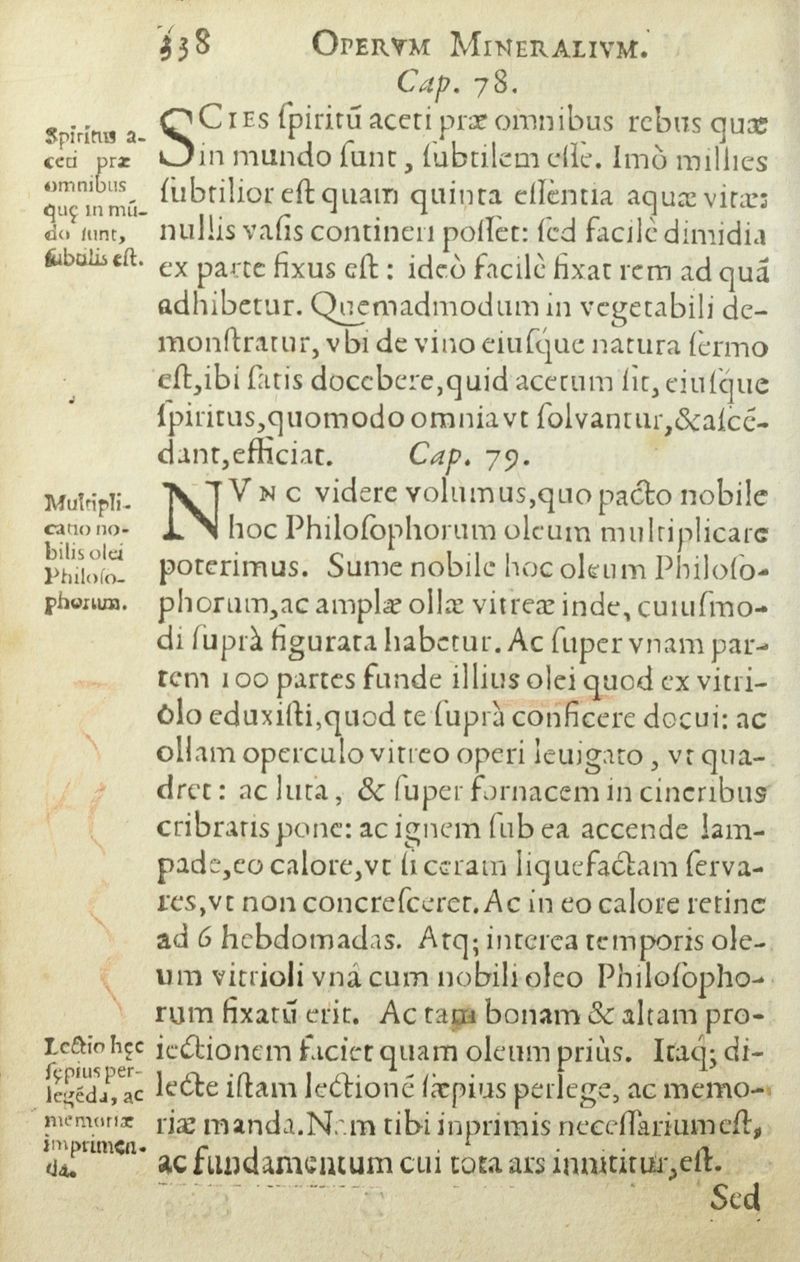 338 OPERVM MINERALIVM.
Cap. 78.
Spiritus a-
ceti præ
omnibus
quę in mū-
do sunt,
subtilis est.
SCIES ſpiritū aceti præ omnibus rebus quæ
in mundo ſunt, ſubtilem eſſe. Imò millies
ſubtilior eſt quam quinta eſſentia aquæ vitæ:
nullis vaſis contineri poſſet: ſed facilè dimidia
ex parte fixus eſt: ideò facilè fixat rem ad quā
adhibetur. Quemadmodum in vegetabili de-
monſtratur, vbi de vino eiuſque natura ſermo
eſt,ibi ſatis docebere,quid acetum ſit, eiuſque
ſpiritus,quomodo omnia vt ſolvantur,&aſcē-
dant,efficiat. Cap. 79.
Multipli-
catio no-
bilis olei
Philoſo-
phorum.
NVNC videre volumus,quo pacto nobile
hoc Philoſophorum oleum multiplicare
poterimus. Sume nobile hoc oleum Philoſo-
phorum,ac amplæ ollæ vitreæ inde, cuiuſmo-
di ſuprà figurata habetur. Ac ſuper vnam par-
tem 100 partes funde illius olei quod ex vitri-
ólo eduxiſti,quod te ſuprà conficere docui: ac
ollam operculo vitreo operi leuigato, vt qua-
dret: ac luta, & ſuper fornacem in cineribus
cribratis pone: ac ignem ſub ea accende lam-
pade,eo calore,vt ſi ceram liquefactam ſerva-
res,vt non concreſceret. Ac in eo calore retine
ad 6 hebdomadas. Atq; interea temporis ole-
um vitrioli vnà cum nobili oleo Philoſopho-
rum fixatū erit. Ac tam bonam & altam pro-
iectionem faciet quam oleum priùs. Itaq; di-
lecte iſtam lectionē ſæpius perlege, ac memo-
riæ manda. Nam tibi inprimis neceſſarium eſt,
ac fundamentum cui tota ars innititur,eſt.
Lectio hęc
ſępius per-
legēda, ac
memoriæ
imprimen-
da.
Sed